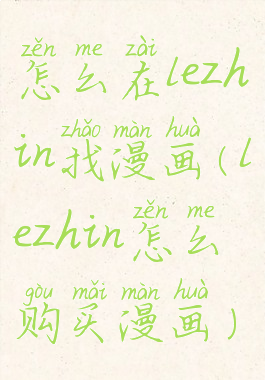 zěn me zài
怎么在lezh
zhǎo màn huà
in找漫画(l
zěn me
ezhin怎么
gòu mǎi màn huà
购买漫画)